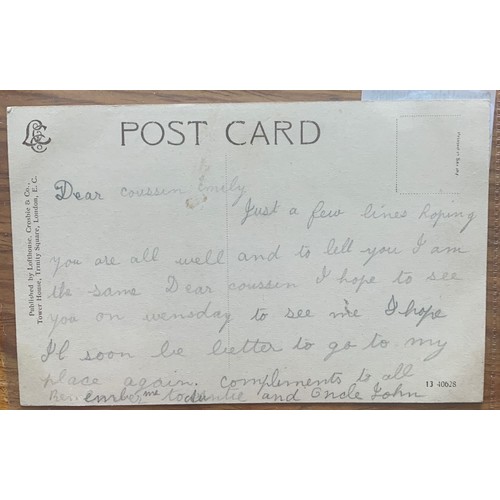 POST CARD
Dear coussin Emily
Just a few lines hoping
you are all well and to tell you I am
the same Dear coussin I hope to see
you on wensday to see me I hope
I'l soon be better to go to my
place again. complements to all
Remember me to Auntie and Oncle John
Published by Lofthouse, Crosbie & Co.,
Tower House, Trinity Square, London, E. C.
13 40628